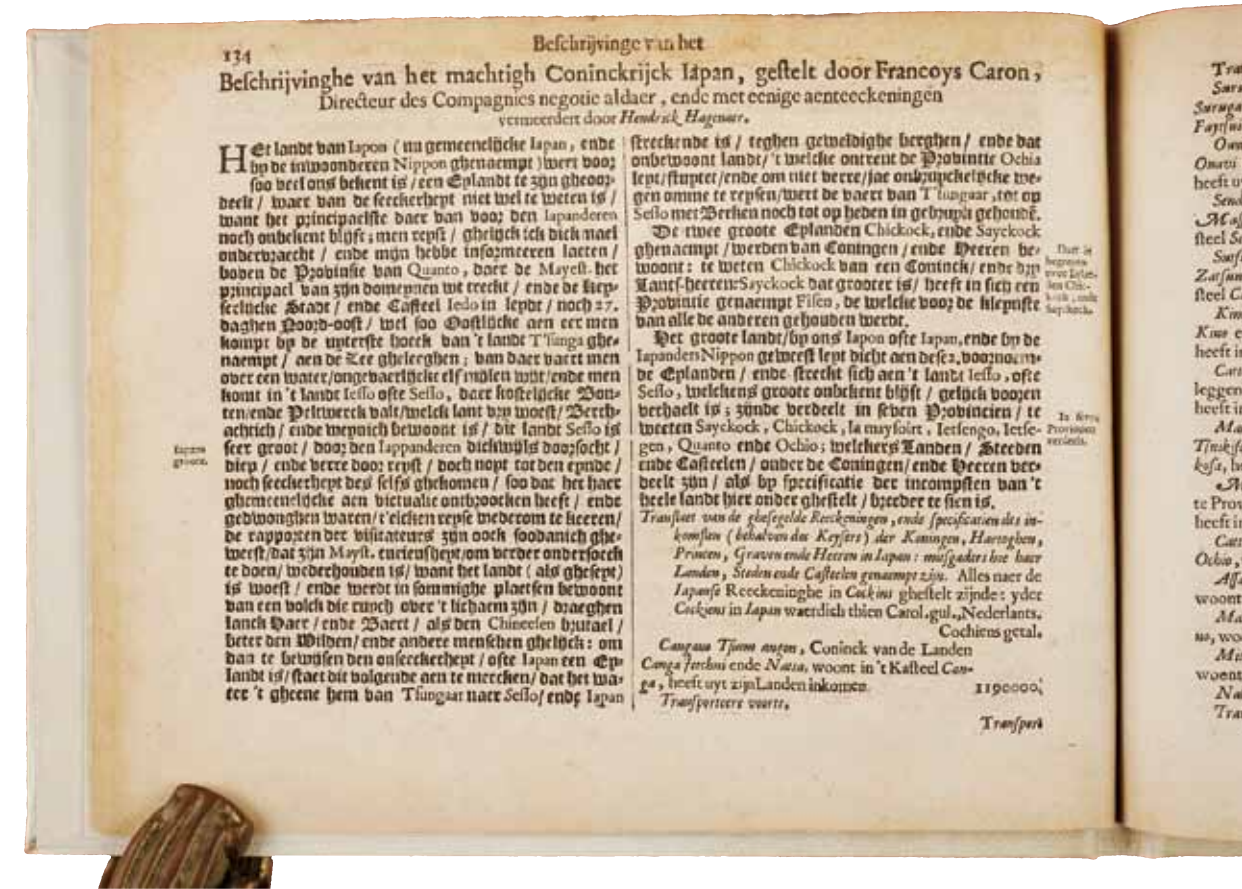 134
Beschrijvinge van het
Beschrijvinghe van het machtigh Coninckrijck Iapan, gestelt door Francoys Caron,
Directeur des Compagnies negotie aldaer, ende met eenige aenteeckeningen
vermeerdert door Hendrick Hagenaer.
HEt landt van Iapon (nu gemeenelijcke Iapan, ende
by de inwoonderen Nippon ghenaempt) wert voor
soo veel ons bekent is / een Eylandt te zijn gheoor-
deelt / waer van de seeckerheyt niet wel te weten is /
want het principaelste daer van voor den Iapanderen
noch onbekent blijft; men reyst / ghelijck ick dick mael
ondervraecht / ende mijn hebbe informeeren laeten /
boven de Provintie van Quanto, daer de Mayest. het
principael van zijn domeynen uut treckt / ende de Keys-
serlijcke Stadt / ende Casteel Iedo in leydt / noch 27.
daghen Noord-oost / wel soo Oostlijcke aen eer men
kompt by de uyterste hoeck van 't landt T'sunga ghe-
naempt / aen de Zee gheleeghen; van daer vaert men
over een water / ongevaerlijcke elf mijlen wijt / ende men
komt in 't landt Iesso ofte Sesso, daer kostelijcke Bon-
ten / ende Peltwerck valt / welck lant vry woest / Berch-
achtich / ende weynich bewoont is / dit landt Sesso is
seer groot / door den Iappanderen dickwijls doorsocht /
diep / ende verre door reyst / doch noyt tot den eynde /
noch seeckerheyt des selfs ghekomen / soo dat het haer
ghemeenelijcke aen victualie ontbroocken heeft / ende
gedwonghen waren / t'elcken reyse wederom te keeren /
de rapporten der visitateurs zijn oock soodanich ghe-
weest / dat zijn Mayst. curieusheyt / om verder ondersoeck
te doen / wederhouden is / want het landt (als gheseyt)
is woest / ende werdt in sommighe plaetsen bewoont
van een volck die ruych over 't lichaem zijn / draeghen
lanck Haer / ende Baert / als den Chineesen brutael /
beter den Wilden / ende andere menschen ghelijck: om
dan te bewijsen den onseeckerheyt / ofte Iapan een Ey-
landt is / staet dit volgende aen te mercken / dat het wa-
ter 't gheene hem van Tsungaar naer Sesso / ende Iapan
Iapans
groote.
streckende is / teghen geweldighe berghen / ende dat
onbewoont landt / 't welcke ontrent de Provintie Ochia
leyt / stuytet / ende om niet verre / jae onbruyckelijcke we-
gen omme te reysen / wert de vaert van T'sungaar, tot op
Sesso met Bercken noch tot op heden in gebruyk gehoudē.
De twee groote Eylanden Chickock, ende Sayckock
ghenaempt / werden van Coningen / ende Heeren be-
woont: te weten Chickock van een Coninck / ende dry
Lants-heeren: Sayckock dat grooter is / heeft in sich een
Provintie genaempt Fisen, de welcke voor de kleynste
van alle de anderen gehouden werdt.
Het groote landt / by ons Iapon ofte Iapan, ende by de
Iapanders Nippon geweest leyt dicht aen dese 2. voornoem-
de Eylanden / ende streckt sich aen 't landt Iesso, ofte
Sesso, welckens groote onbekent blijft / gelijck vooren
verhaelt is; zijnde verdeelt in seven Provincien / te
weeten Sayckock, Chickock, Iamaysoirt, Ietsengo, Ietse-
gen, Quanto ende Ochio; welckers Landen / Steeden
ende Casteelen / onder de Coningen / ende Heeren ver-
deelt zijn / als by specificatie der incompsten van 't
heele landt hier onder ghestelt / breeder te sien is.
In seven
Provintien
verdeelt.
Translaet van de ghesegelde Reeckeningen, ende specificatien des in-
komsten (behalven des Keysers) der Koningen, Hartoghen,
Princen, Graven ende Heeren in Iapan: mitsgaders hoe haer
Landen, Steden ende Casteelen genaempt zijn. Alles naer de
Iapanse Reeckeninghe in Cockins ghestelt zijnde: yder
Cockjens in Iapan waerdich thien Carol. gul., Nederlants.
Cochiens getal.
Cangano Tsuna angon, Coninck van de Landen
Canga Jetchiu ende Natta, woont in 't Kasteel Can-
ga, heeft uyt zijn Landen inkomen. 1190000.
Transporteere voorts.
Transport